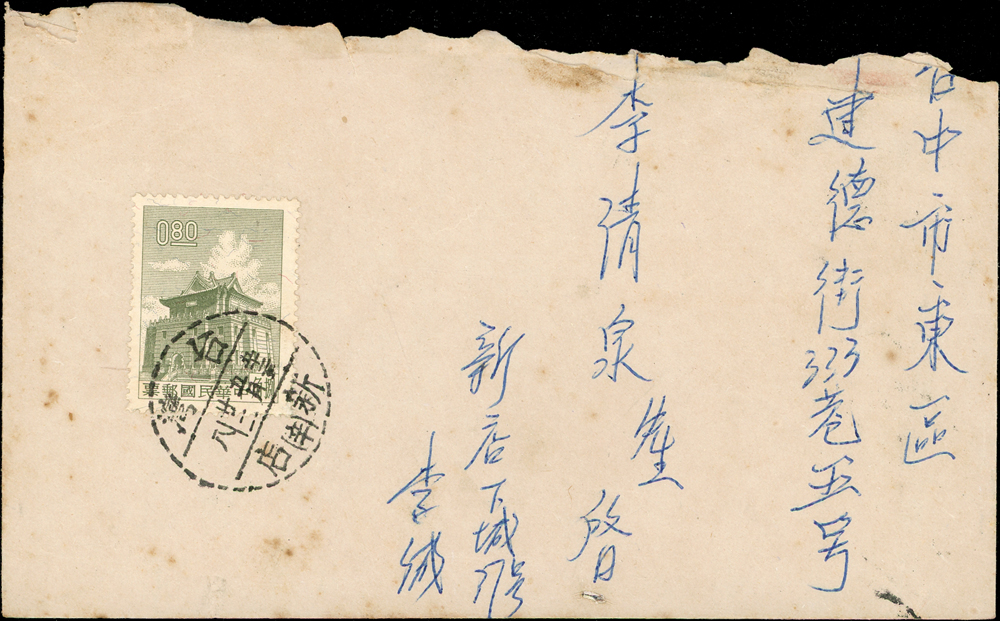 台中市東區
建德街333巷五号
李清泉先生 啓
新店下城
李緘
0.80
中華民國郵票
台灣
新店